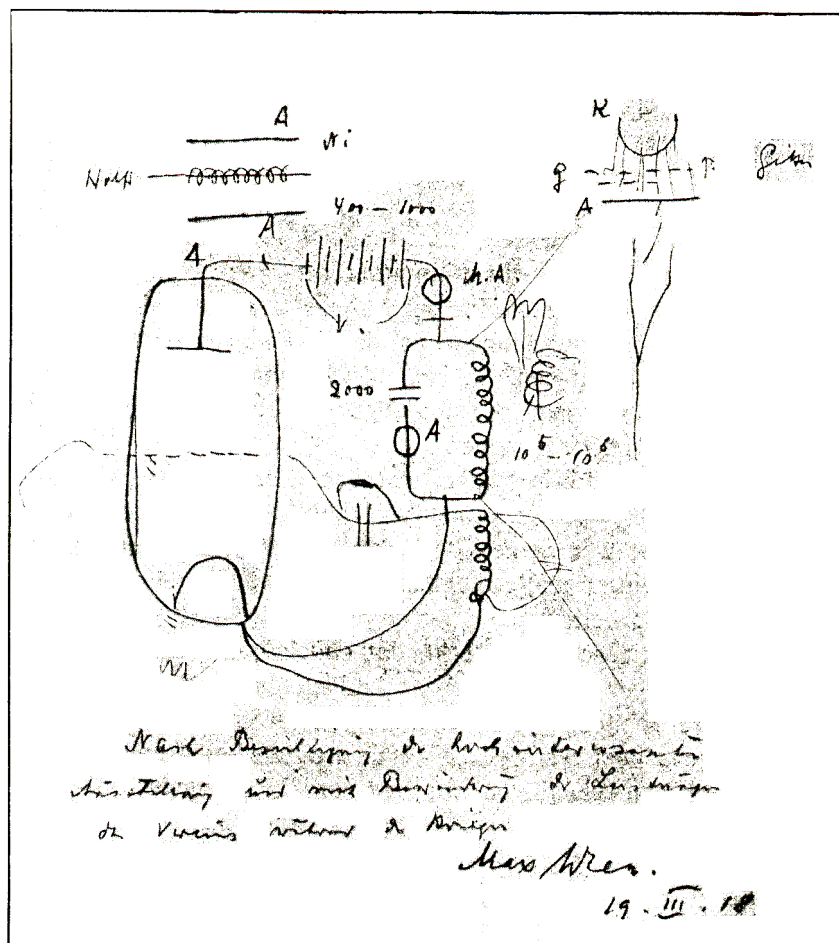 A
Ni
K
g
Gitter
A
A
400 – 1000
A
m.A.
V.
2000
A
10⁵ – 10⁶
Nach Besichtigung der hochinteressanten
Ausstellung und mit Bewunderung der Leistungen
des Vereins während des Krieges
Max Wien.
19. III. 18